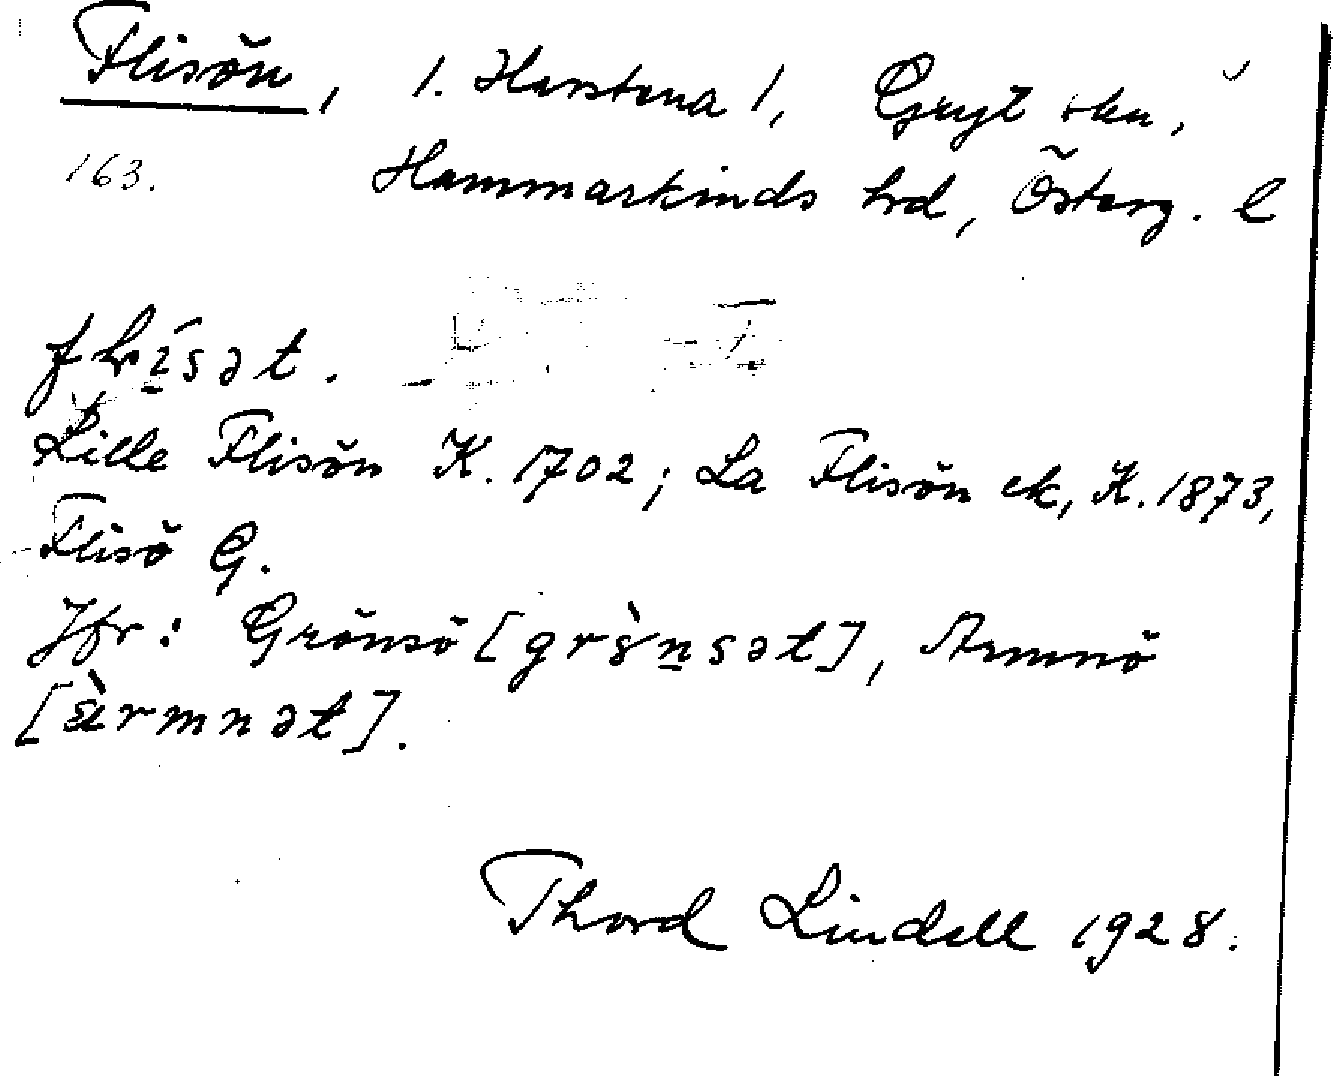 Flisön, 1. Harstena 1, Gryt skn,
163. Hammarkinds hrd, Österg. l
flísət.
Lille Flisön K. 1702; La Flisön ek, K. 1873,
Flisö G.
Jfr: Grönsö [grö̀nsət], Armnö
[àrmnət].
Thord Lindell 1928.